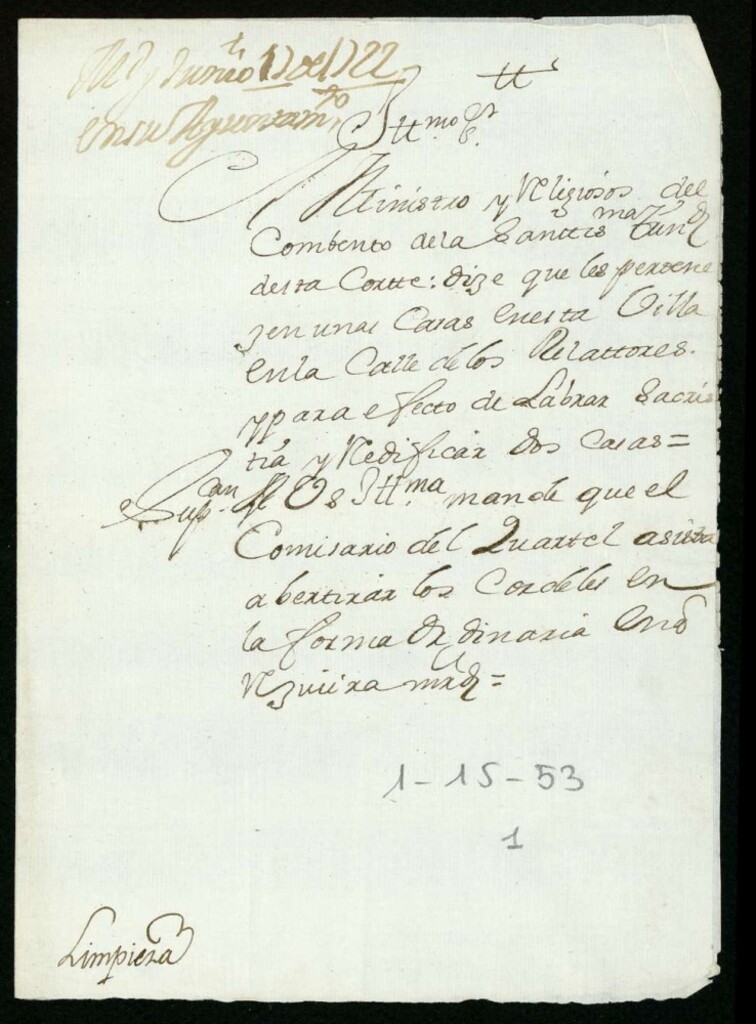 M.d y Junio 17 de 1722
en su Ayuntam.to
Itt.mo S.r
Ministro y Religiosos del
Combento de la Santtis.ma Trin.d
desta Cortte: dize que les pertene
zen unas Casas en esta Villa
en la Calle de los Relattores.
y para efecto de Labrar Sacris
tia y Redificar dos Casas=
Sup.can A V S Itt.ma mande que el
Comisario del Quartel asista
a ber tirar los Cordeles en
la forma Ordinaria en q
Rezivira mrd=
1-15-53
1
Limpieza